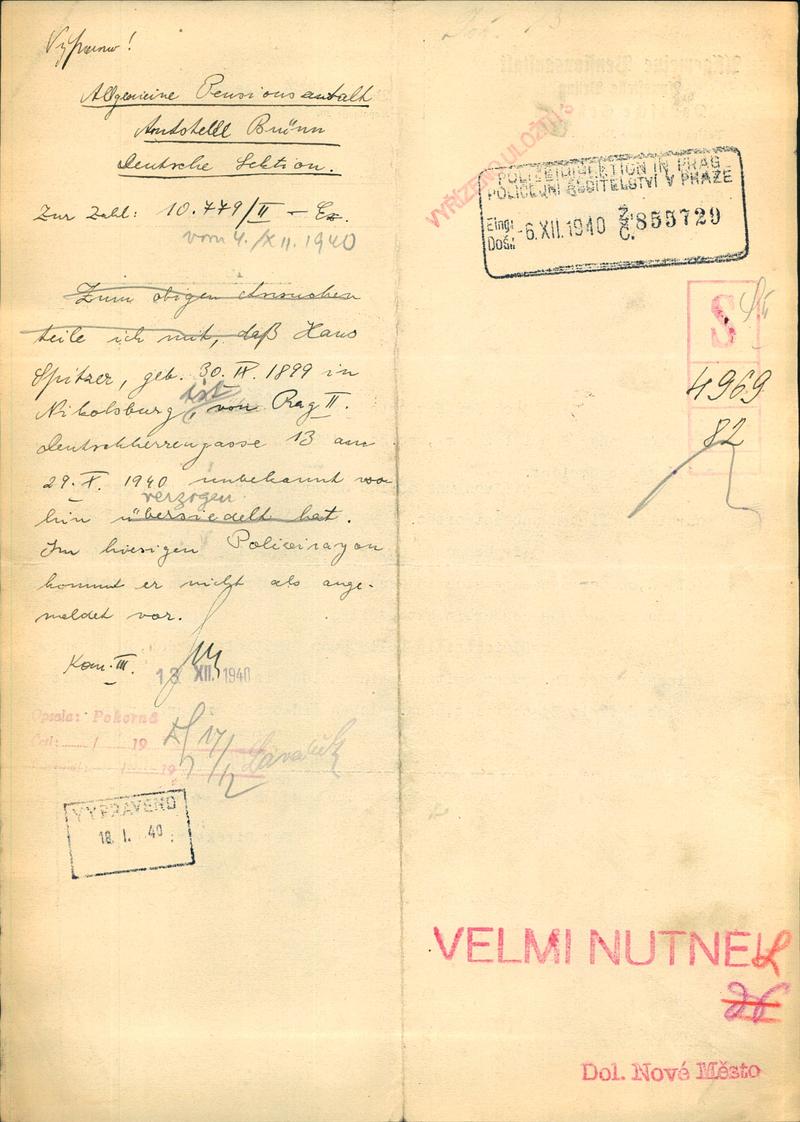 Vypraví!
Allgemeine Pensionsanstalt
Amtstelle Brünn
Deutsche Sektion.
Zur Zahl: 10.779/II – Ex.
vom 4./XII. 1940
Zum obigen Ansuchen
teile ich mit, daß Hans
Spitzer, geb. 30. IX. 1899 in
Nikolsburg, ist von Prag II.
Deutschherrengasse 13 am
29. X. 1940 unbekannt wo-
verzogen
hin übersiedelt hat.
Im hiesigen Polizeirayon
kommt er nicht als ange-
meldet vor.
Kom. III.
13 XII. 1940
Opsala: Pokorná
Četl: / 19
17/12
VYPRAVENO
18. I. 40
VYŘÍZENO ULOŽITI
POLIZEIDIREKTION IN PRAG
POLICEJNÍ ŘEDITELSTVÍ V PRAZE
Eing:
Doš.:
-6. XII. 1940
Z.
Č.
855729
S
4969
82
VELMI NUTNÉ
Dol. Nové Město